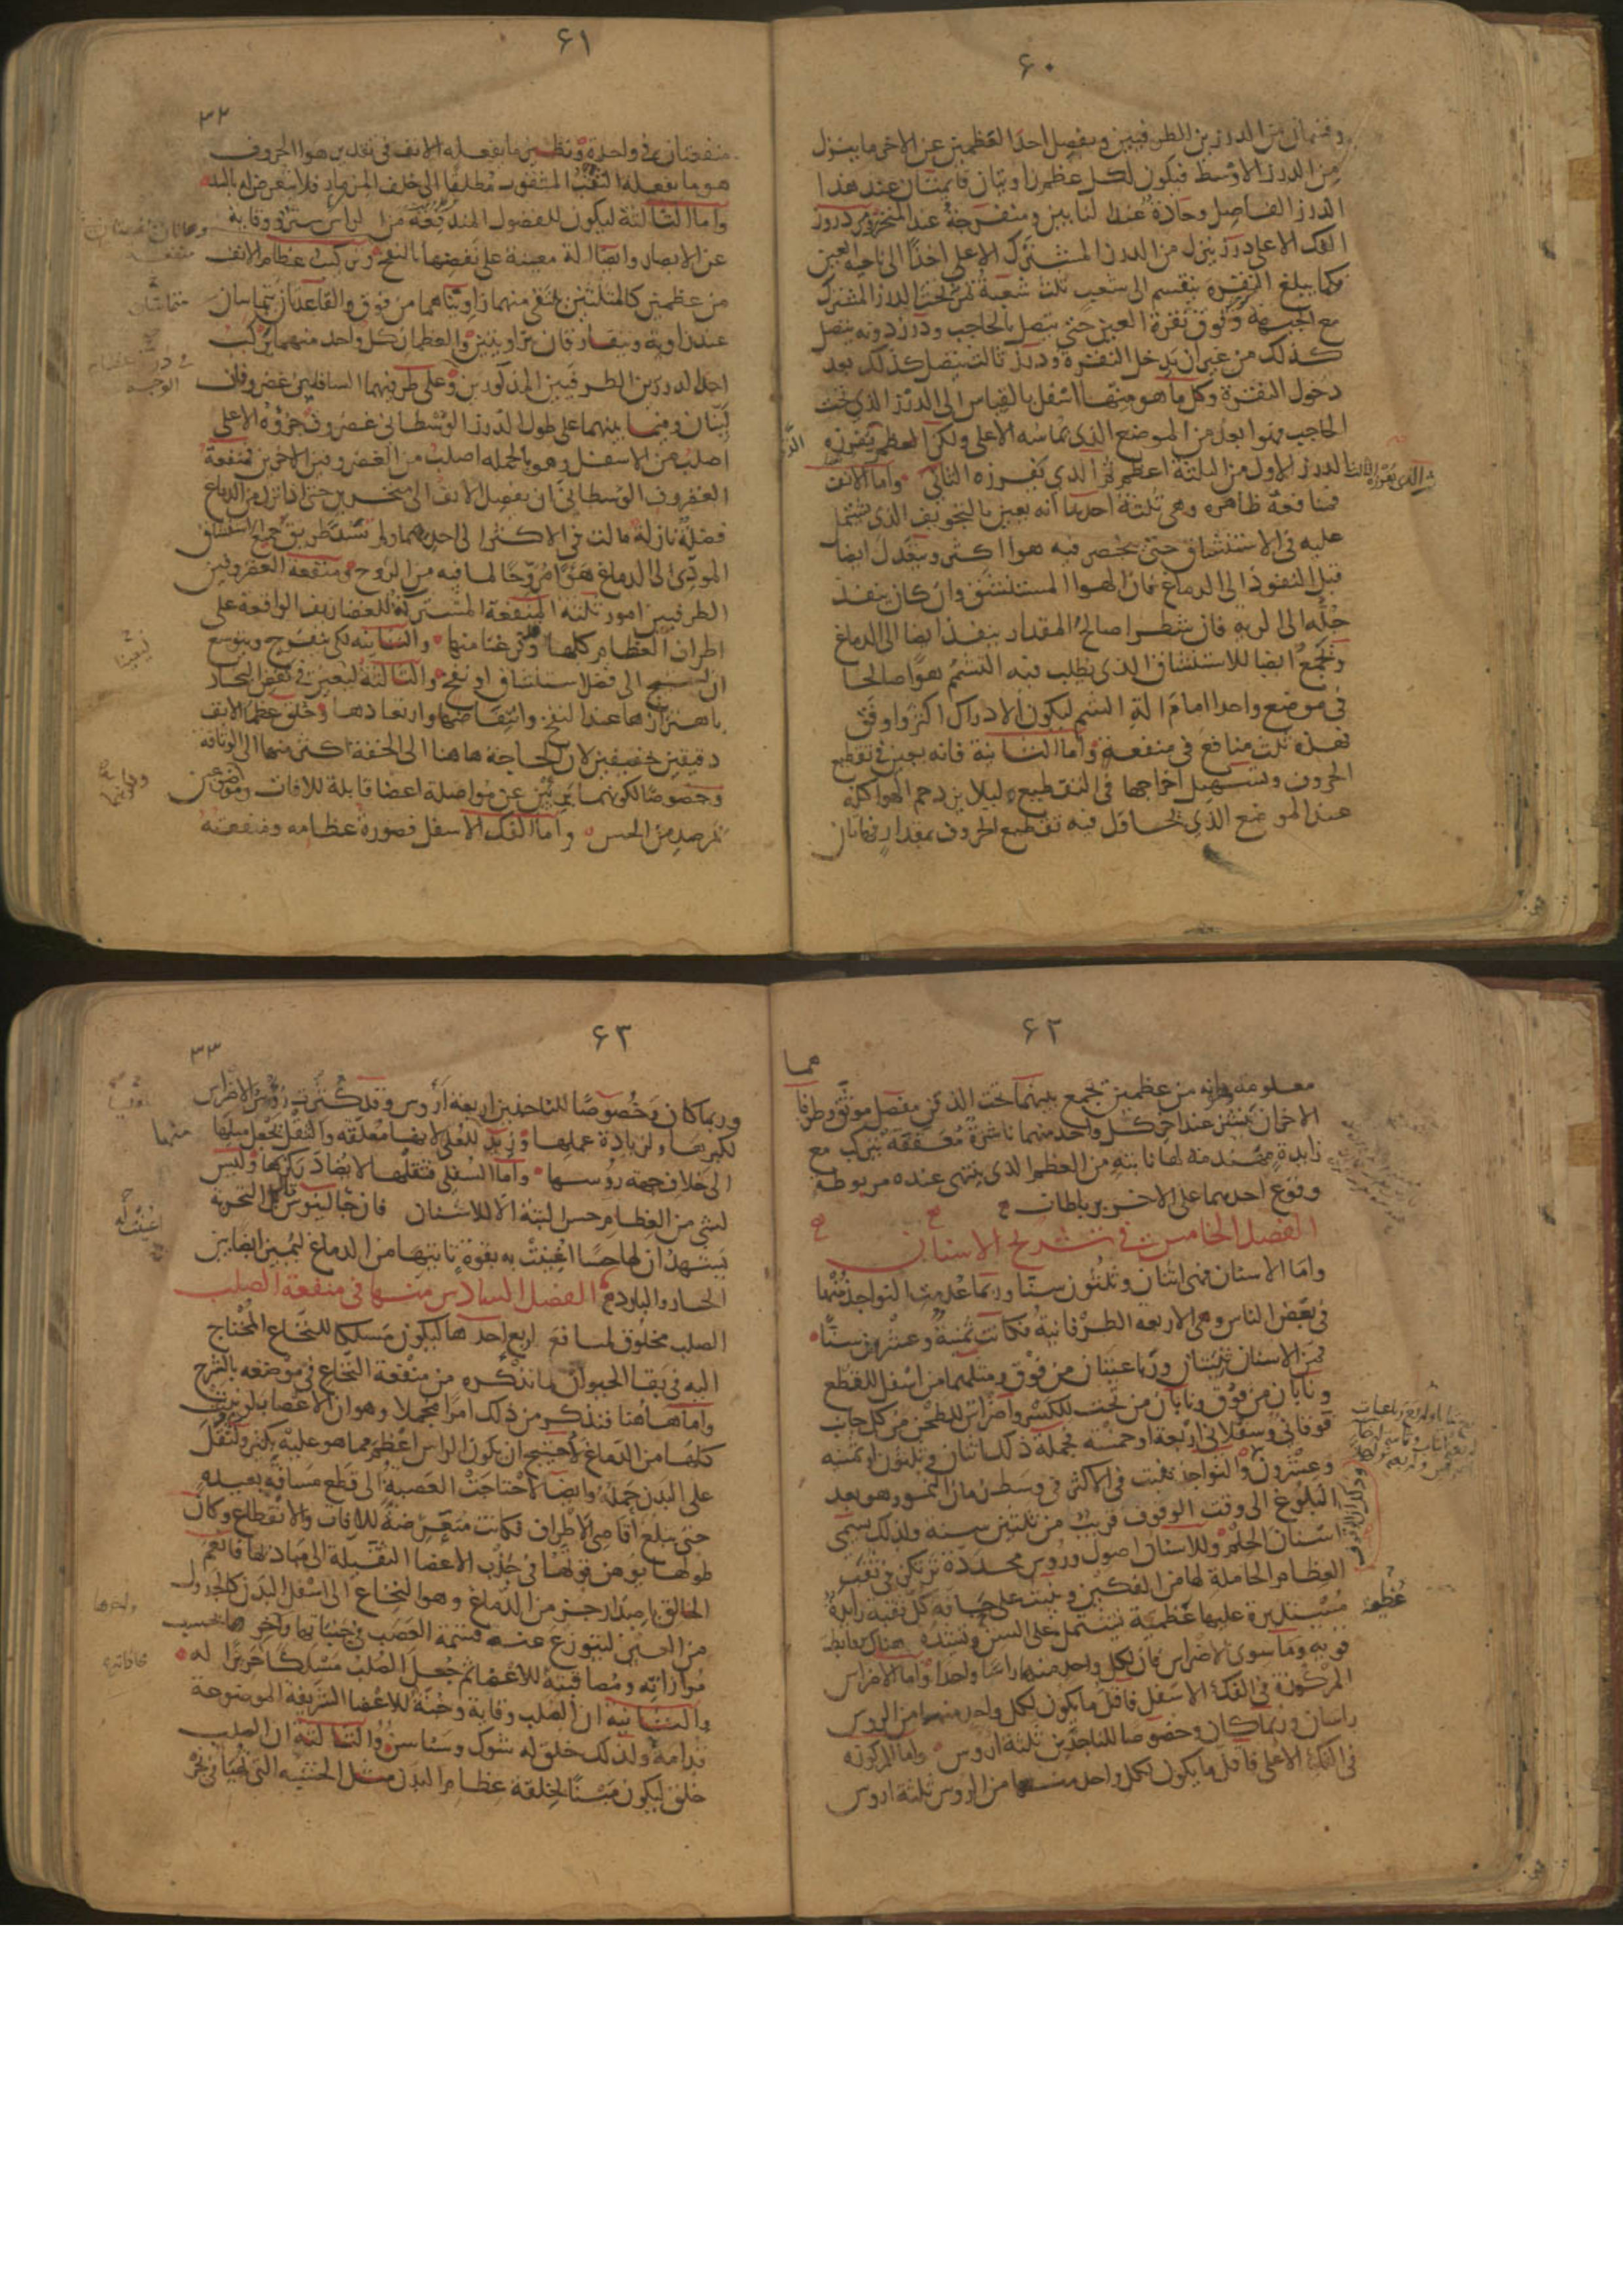 ۶۰
وقسمان من الدرزين الطرفيين ويفصل احد العظمين عن الاخر ما ينزل
من الدرز الاوسط فيكون لكل عظم زاويتان قايمتان عند هذا
الدرز الفاصل وحادة عند النابين ومنفرجة عند المنخرين ومن دروز
الفك الاعلى درز ينزل من الدرز المشترك الاعلى اخذا الى ناحية العين
فكما يبلغ النقرة ينقسم الى شعب ثلث شعبة تمر تحت الدرز المشترك
مع الجبهة وفوق نقرة العين حتى يتصل بالحاجب ودرز دونه يتصل
كذلك من غير ان يدخل النقرة ودرز ثالث يتصل كذلك بعد
دخول النقرة وكل ما هو منها اسفل بالقياس الى الدرز الذي تحت
الحاجب فهو ابعد من الموضع الذي يماسه الاعلى ولكن العظم يفرزه
الدرز الاول من الثلثة اعظم ثم الذي يفرزه الثاني واما الانف
ثم الذي يفرزه الثالث
فمنافعه ظاهرة وهي ثلثة احدها انه يعين بالتجويف الذي يشتمل
عليه في الاستنشاق حتى ينحصر فيه هواء اكثر ويتعدل ايضا
قبل النفوذ الى الدماغ فان الهواء المستنشق وان كان ينفذ
جله الى الرية فان شطرا صالح المقدار ينفذ ايضا الى الدماغ
ويجمع ايضا للاستنشاق الذي يطلب فيه التشمم هواء صالحا
في موضع واحد امام الة الشم ليكون الادراك اكثر واوفق
فهذه ثلث منافع في منفعة واما الثانية فانه يعين في تقطيع
الحروف وتسهيل اخراجها في التقطيع ليلا يزدحم الهوا كله
عند الموضع الذي يحاول فيه تقطيع الحروف بمقدار فهاتان
۶۱
۳۲
منفعتان في واحدة ونظير ما يفعله الانف في تقدير هوا الحروف
هو ما يفعله الثقب المثقوب مطلقا الى خلف المزمار فلا يتعرض له بالسد
واما الثالثة ليكون للفضول المندفعة من الراس ستر ووقاية
عن الابصار وايضا الة معينة على نفضها بالنفخ وتركيب عظام الانف
من عظمين كالمثلثين يلتقي منهما زاويتاهما من فوق والقاعدتان يتماسان
عند زاوية ويتفارقان بزاويتين والعظمان كل واحد منهما يركب
احد الدرزين الطرفيين المذكورين وعلى طرفيهما السافلين غضروفان
لينان وفيما بينهما على طول الدرز الوسطاني غضروف جزؤه الاعلى
اصلب من الاسفل وهو بالجملة اصلب من الغضروفين الاخرين فمنفعة
الغضروف الوسطاني ان يفصل الانف الى منخرين حتى اذا نزل من الدماغ
فضلة نازلة مالت في الاكثر الى احدهما ولم تسد طريق جميع الاستنشاق
المودى الى الدماغ هواء مروحا لما فيه من الروح ومنفعة الغضروفين
الطرفيين امور ثلثة المنفعة المشتركة للغضاريف الواقعة على
اطراف العظام كلها وقد فرغنا منها والثانية لكي ينفرج ويتوسع
ان احتيج الى فضل استنشاق او نفخ والثالثة ليعين في نفض البخار
باهتزازها عند النفخ وانتفاضها وارتعادها وخلق عظما الانف
دقيقين خفيفين لان الحاجة هاهنا الى الخفة اكثر منها الى الوثاقة
وخصوصا لكونهما بريئين عن مواصلة اعضا قابلة للافات وموضوعين
بمرصد من الحس واما الفك الاسفل فصورة عظامه ومنفعته
۶۲
معلومة وانه من عظمين يجمع بينهما تحت الذقن مفصل موثق وطرفاهما
الاخران ينتشز عند اخر كل واحد منهما ناشزة معقفة يتركب مع
زايدة مهندمة لها نابتة من العظم الذي ينتهي عنده مربوطة
وقوع احدهما على الاخر برباطات
الفصل الخامس في تشريح الاسنان
واما الاسنان فهي اثنان وثلثون سنا وربما عدمت النواجذ منها
في بعض الناس وهي الاربعة الطرفانية فكانت ثمنية وعشرين سنا
فمن الاسنان ثنيتان ورباعيتان من فوق ومثلهما من اسفل للقطع
ونابان من فوق ونابان من تحت للكسر واضراس للطحن من كل جانب
فوقاني وسفلاني اربعة او خمسة فجملة ذلك اثنان وثلثون او ثمنية
وعشرون والنواجذ تنبت في الاكثر في وسط زمان النمو وهو بعد
البلوغ الى وقت الوقوف قريب من ثلثين سنة ولذلك يسمى
اسنان الحلم وللاسنان اصول وروس محددة ترتكز في ثقب
العظام الحاملة لها من الفكين وينبت على حافة كل ثقبة زايدة
مستديرة عليها عظمية يشتمل على السن وتشده هناك روابط
قوية وما سوى الاضراس فان لكل واحد منها راسا واحدا واما الاضراس
المركوزة في الفك الاسفل فاقل ما يكون لكل واحد منها من الروس
راسان وربما كان وخصوصا للناجذين ثلثة اروس واما المركوزة
في الفك الاعلى فاقل ما يكون لكل واحد منها من الروس ثلثة اروس
۶۳
۳۳
وربما كان وخصوصا للناجذين اربعة اروس وقد كثرت رؤس الاضراس
لكبرها ولزيادة عملها وزيد للعلى لانها معلقة والثقل يجعل ميلها
الى خلاف جهة روسها واما السفلى فثقلها لا يضاد ركزها وليس
لشي من العظام حس البتة الا للاسنان فان جالينوس قال بل التجربة
يشهد ان لها حسا اعينت به بقوة تاتيها من الدماغ ليميز ايضا بين
الحار والبارد الفصل السادس منها في منفعة الصلب
الصلب مخلوق لمنافع اربع احدها ليكون مسلكا للنخاع المحتاج
اليه في بقا الحيوان لما نذكره من منفعة النخاع في موضعه بالشرح
واما هاهنا فنذكر من ذلك امرا مجملا وهو ان الاعصاب لو نبتت
كلها من الدماغ لاحتيج ان يكون الراس اعظم مما هو عليه بكثير ولثقل
على البدن حمله وايضا لاحتاجت العصبة الى قطع مسافة بعيدة
حتى يبلغ اقاصي الاطراف فكانت متعرضة للافات والانقطاع وكان
طولها يوهن قوتها في جذب الاعضا الثقيلة الى مباديها فانعم
الخالق باصدار جزء من الدماغ وهو النخاع الى اسفل البدن كالجدول
من العين ليتوزع عنه قسمة العصب في جنباتها واخرها بحسب
موازاته ومصاقبته للاعضا ثم جعل الصلب مسلكا حريزا له
والثانية ان الصلب وقاية وجنة للاعضا الشريفة الموضوعة
قدامه ولذلك خلق له شوك وسناسن والثالثة ان الصلب
خلق ليكون مبنا لخلقة عظام البدن مثل الخشبة التي تهيا في نجر